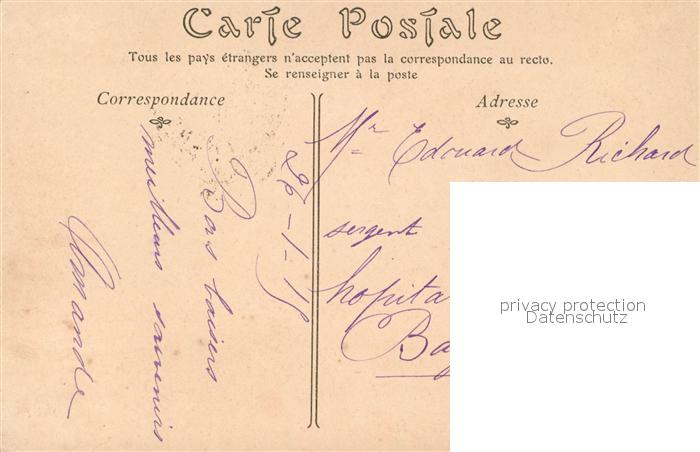 Carte Postale
Tous les pays étrangers n'acceptent pas la correspondance au recto.
Se renseigner à la poste
Correspondance
26-1-15
Bons baisers
meilleurs souvenirs
Amande
Adresse
Mr Edouard Richard
sergent
hopita
Ba
privacy protection
Datenschutz